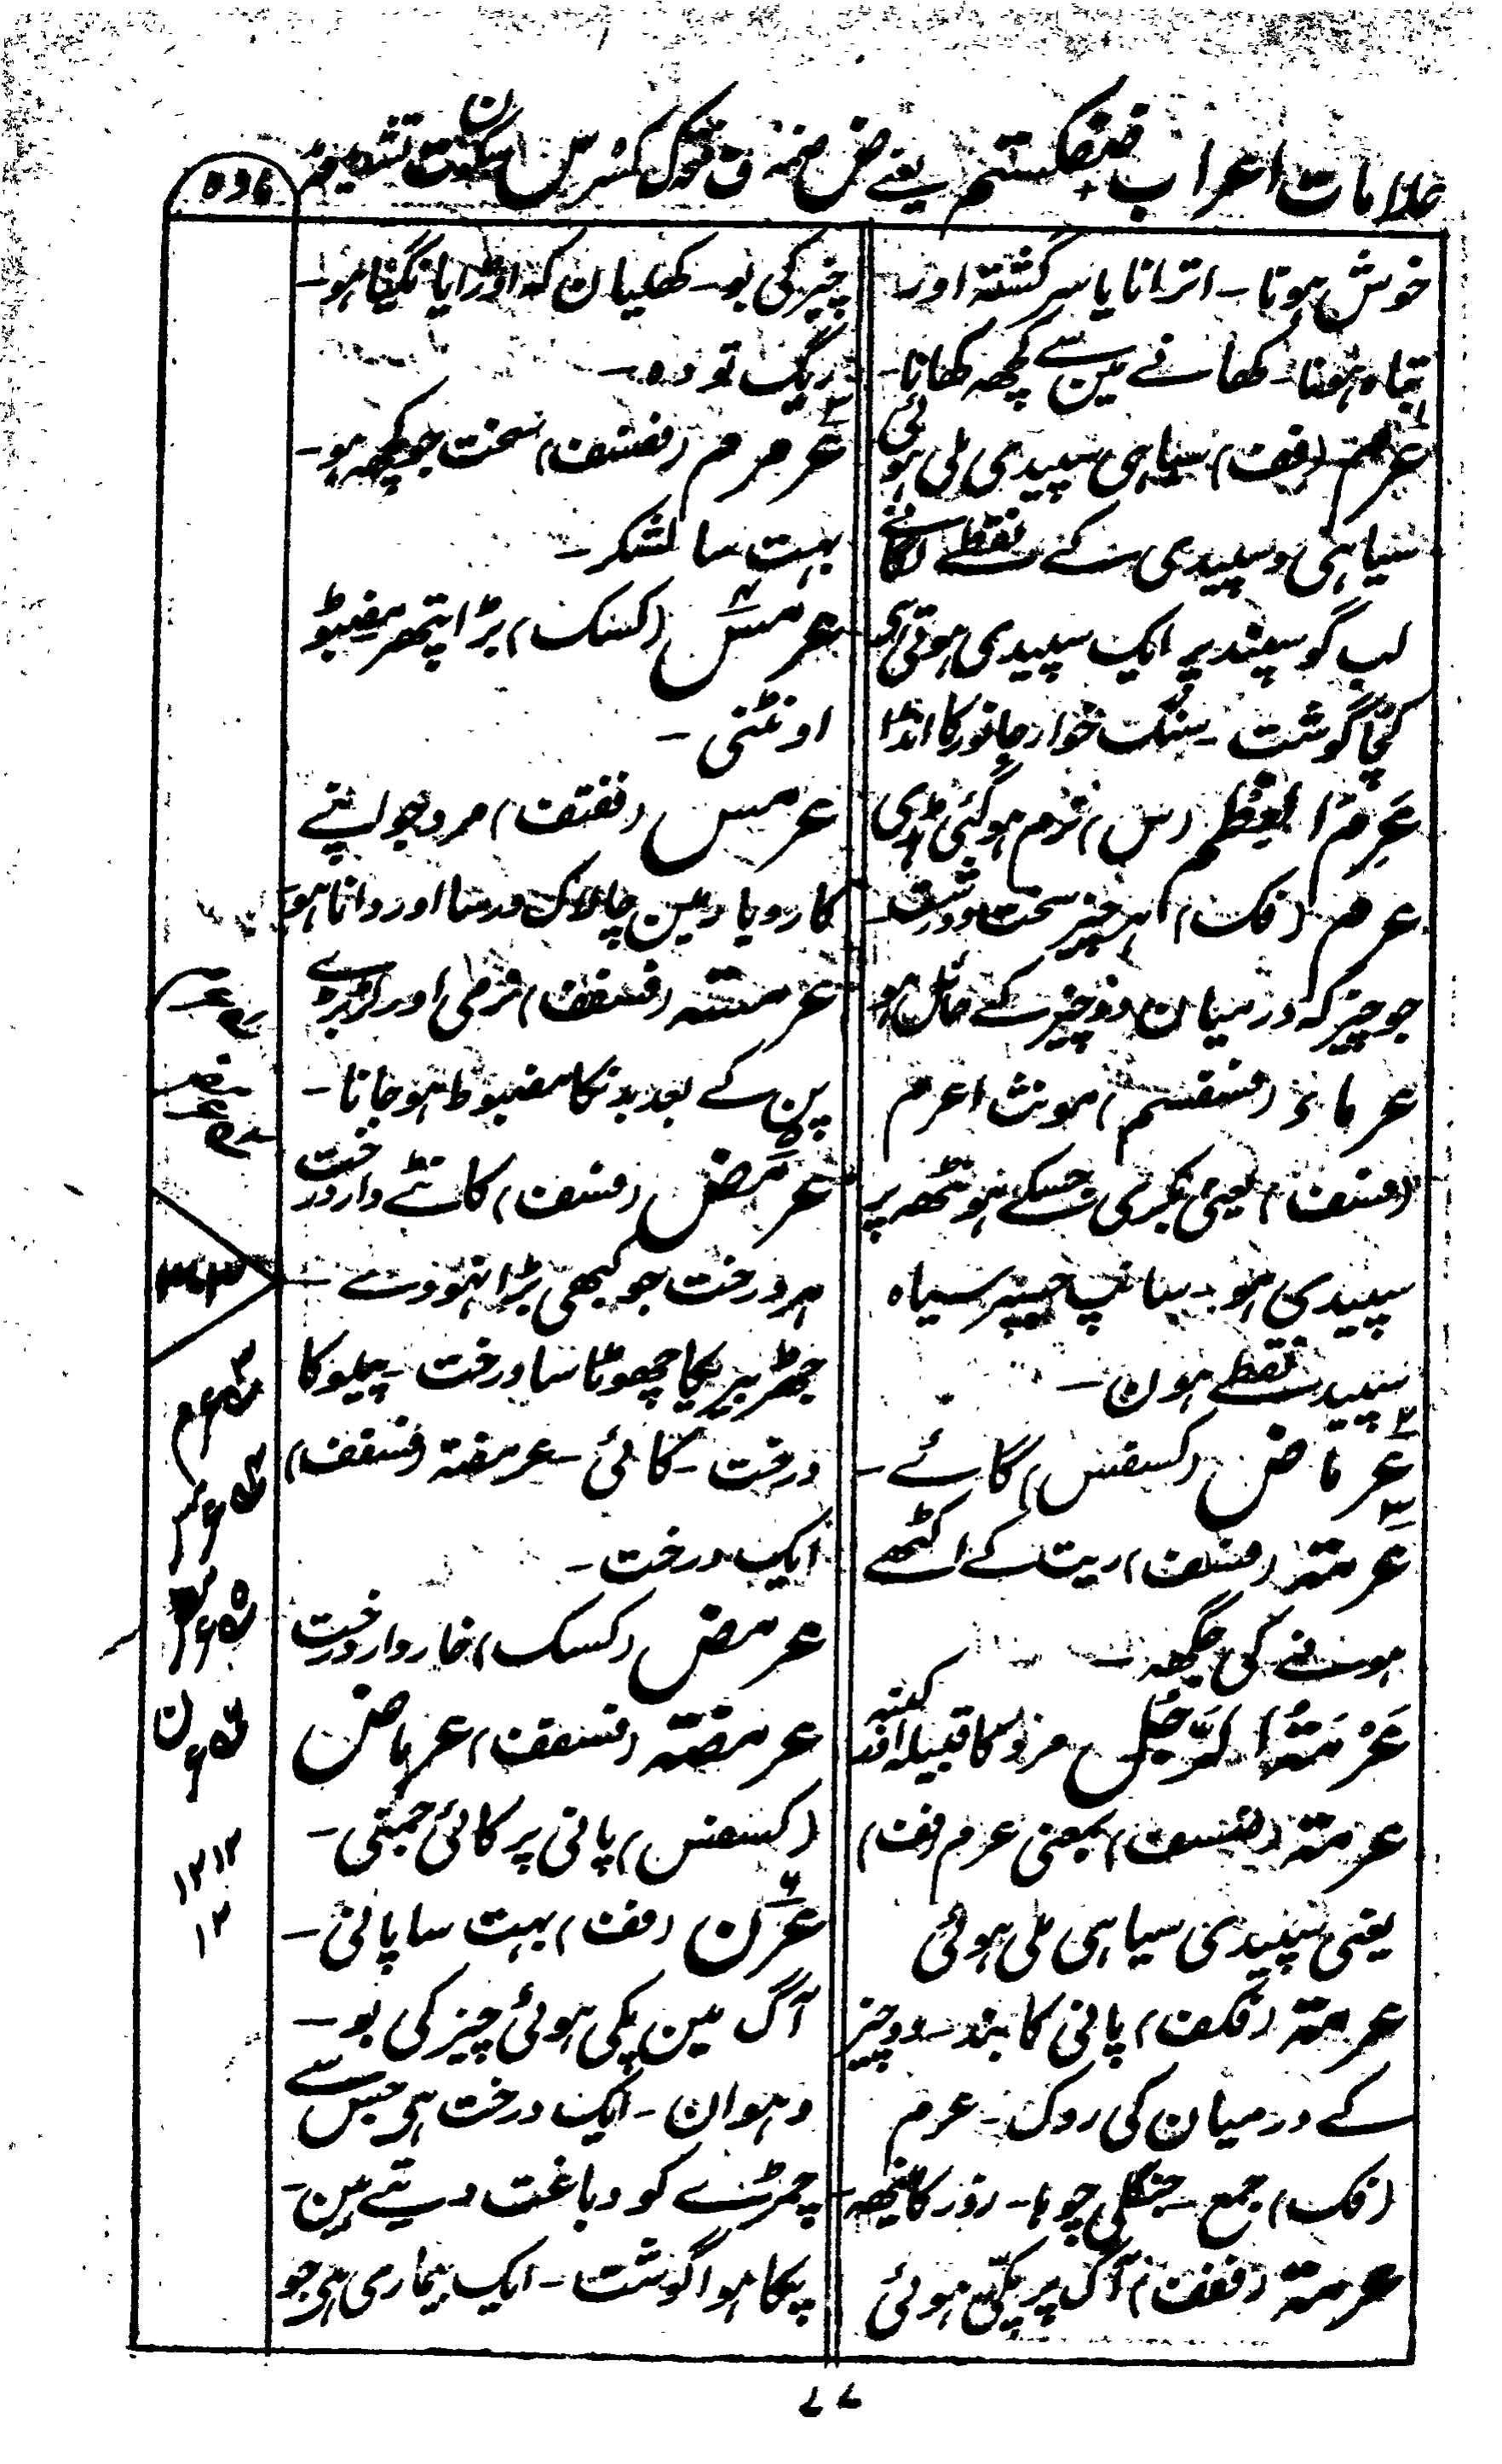 علامات اعراب فضکستم یعنی ض ضمہ ف فتح ک کسر س سکون ت تشدید م مد
خوش ہونا۔ اترانا یا سرگشتہ اور
تباہ ہونا۔ کھانے مین سے کچھ کھانا۔
عرم (فف) سیاہی سپیدی ملی ہوئی
سیاہی و سپیدی کے نقطے لگانے
لب گوسپند پر ایک سپیدی ہوتی ہی۔
کچا گوشت۔ سنگ خوار جانور کا انڈا
عَرِمَ العظم (س) نرم ہوگئی ہڈی
عرم (فک) ہر چیز سخت و درشت۔
جو چیز کہ درمیان دو چیز کے حائل ہو
عرماء (فسفسم) مونث اعرم
(فسف) یعنی بکری جسکے ہونٹھ پر
سپیدی ہو۔ سانپ جسپر سیاہ
سپید نقطے ہون۔
عرماض (کسفس) کائے۔
عرمتہ (فسف) ریت کے اکٹھے
ہونے کی جگھ۔
عَرْمَتُہ الرَّجُل مرد کا قبیلہ اور کنبہ
عرمتہ (ضسف) بمعنی عرم (فف)
یعنی سپیدی سیاہی ملی ہوئی
عرمتہ (فکف) پانی کا بند۔ دو چیز
کے درمیان کی روک۔ عرم
(فک) جمع۔ جنگلی چوہا۔ زور کا مینھ۔
عرمتہ (ففف) آگ پر پکی ہوئی
چیز کی بو۔ کھلیان کہ اوڑایا نگیا ہو۔
ریگ تودہ۔
عرمرم (ففسف) سخت جو کچھ ہو۔
بہت سا لشکر۔
عرمس (کسک) بڑا پتھر مضبو
اونٹنی۔
عرمس (ففتف) مرد جو اپنے
کاروبار مین چالاک و رسا اور دانا ہو۔
عرمستہ (فسففف) نرمی اور لڑبڑے
پن کے بعد بدنکا مضبوط ہوجانا۔
عرمض (فسف) کانٹے دار درخت
ہر درخت جو کبھی بڑا نہووے۔
جھڑبیریکا چھوٹا سا درخت۔ پیلو کا
درخت۔ کائی۔ عرمضتہ (فسفف)
ایک درخت۔
عرمض (کسک) خاردار درخت
عرمضتہ (فسففف) عرماض
(کسفس) پانی پر کائی جمتی۔
عرن (فف) بہت سا پانی۔
آگ مین پکی ہوئی چیز کی بو۔
دہوان۔ ایک درخت ہی جس سے
چمڑے کو دباغت دیتے ہین۔
پکا ہوا گوشت۔ ایک بیماری ہی جو
۱۲ ۱۲
۱۲
۷۷